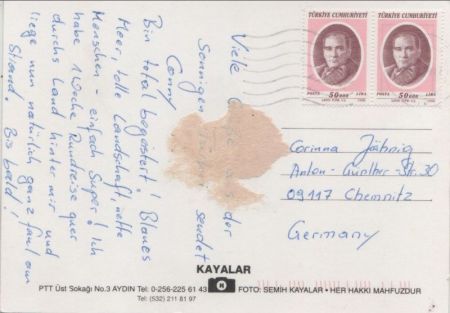 Viele
der
Sonnigen sendet
Conny
Bin total begeistert! Blaues
Meer, tolle Landschaft, nette
Menschen - einfach Super! Ich
habe 1 Woche Rundreise quer
durchs Land hinter mir und
liege nun natürlich ganz faul am
Strand. Bis bald!
TÜRKİYE CUMHURİYETİ
POSTA 50 000 LİRA
TÜRKİYE CUMHURİYETİ
POSTA 50 000 LİRA
Corinna
Anton-Günther-Str. 30
09117 Chemnitz
Germany
KAYALAR
PTT Üst Sokağı No.3 AYDIN Tel: 0-256-225 61 43 FOTO: SEMİH KAYALAR • HER HAKKI MAHFUZDUR
Tel: (532) 211 81 97